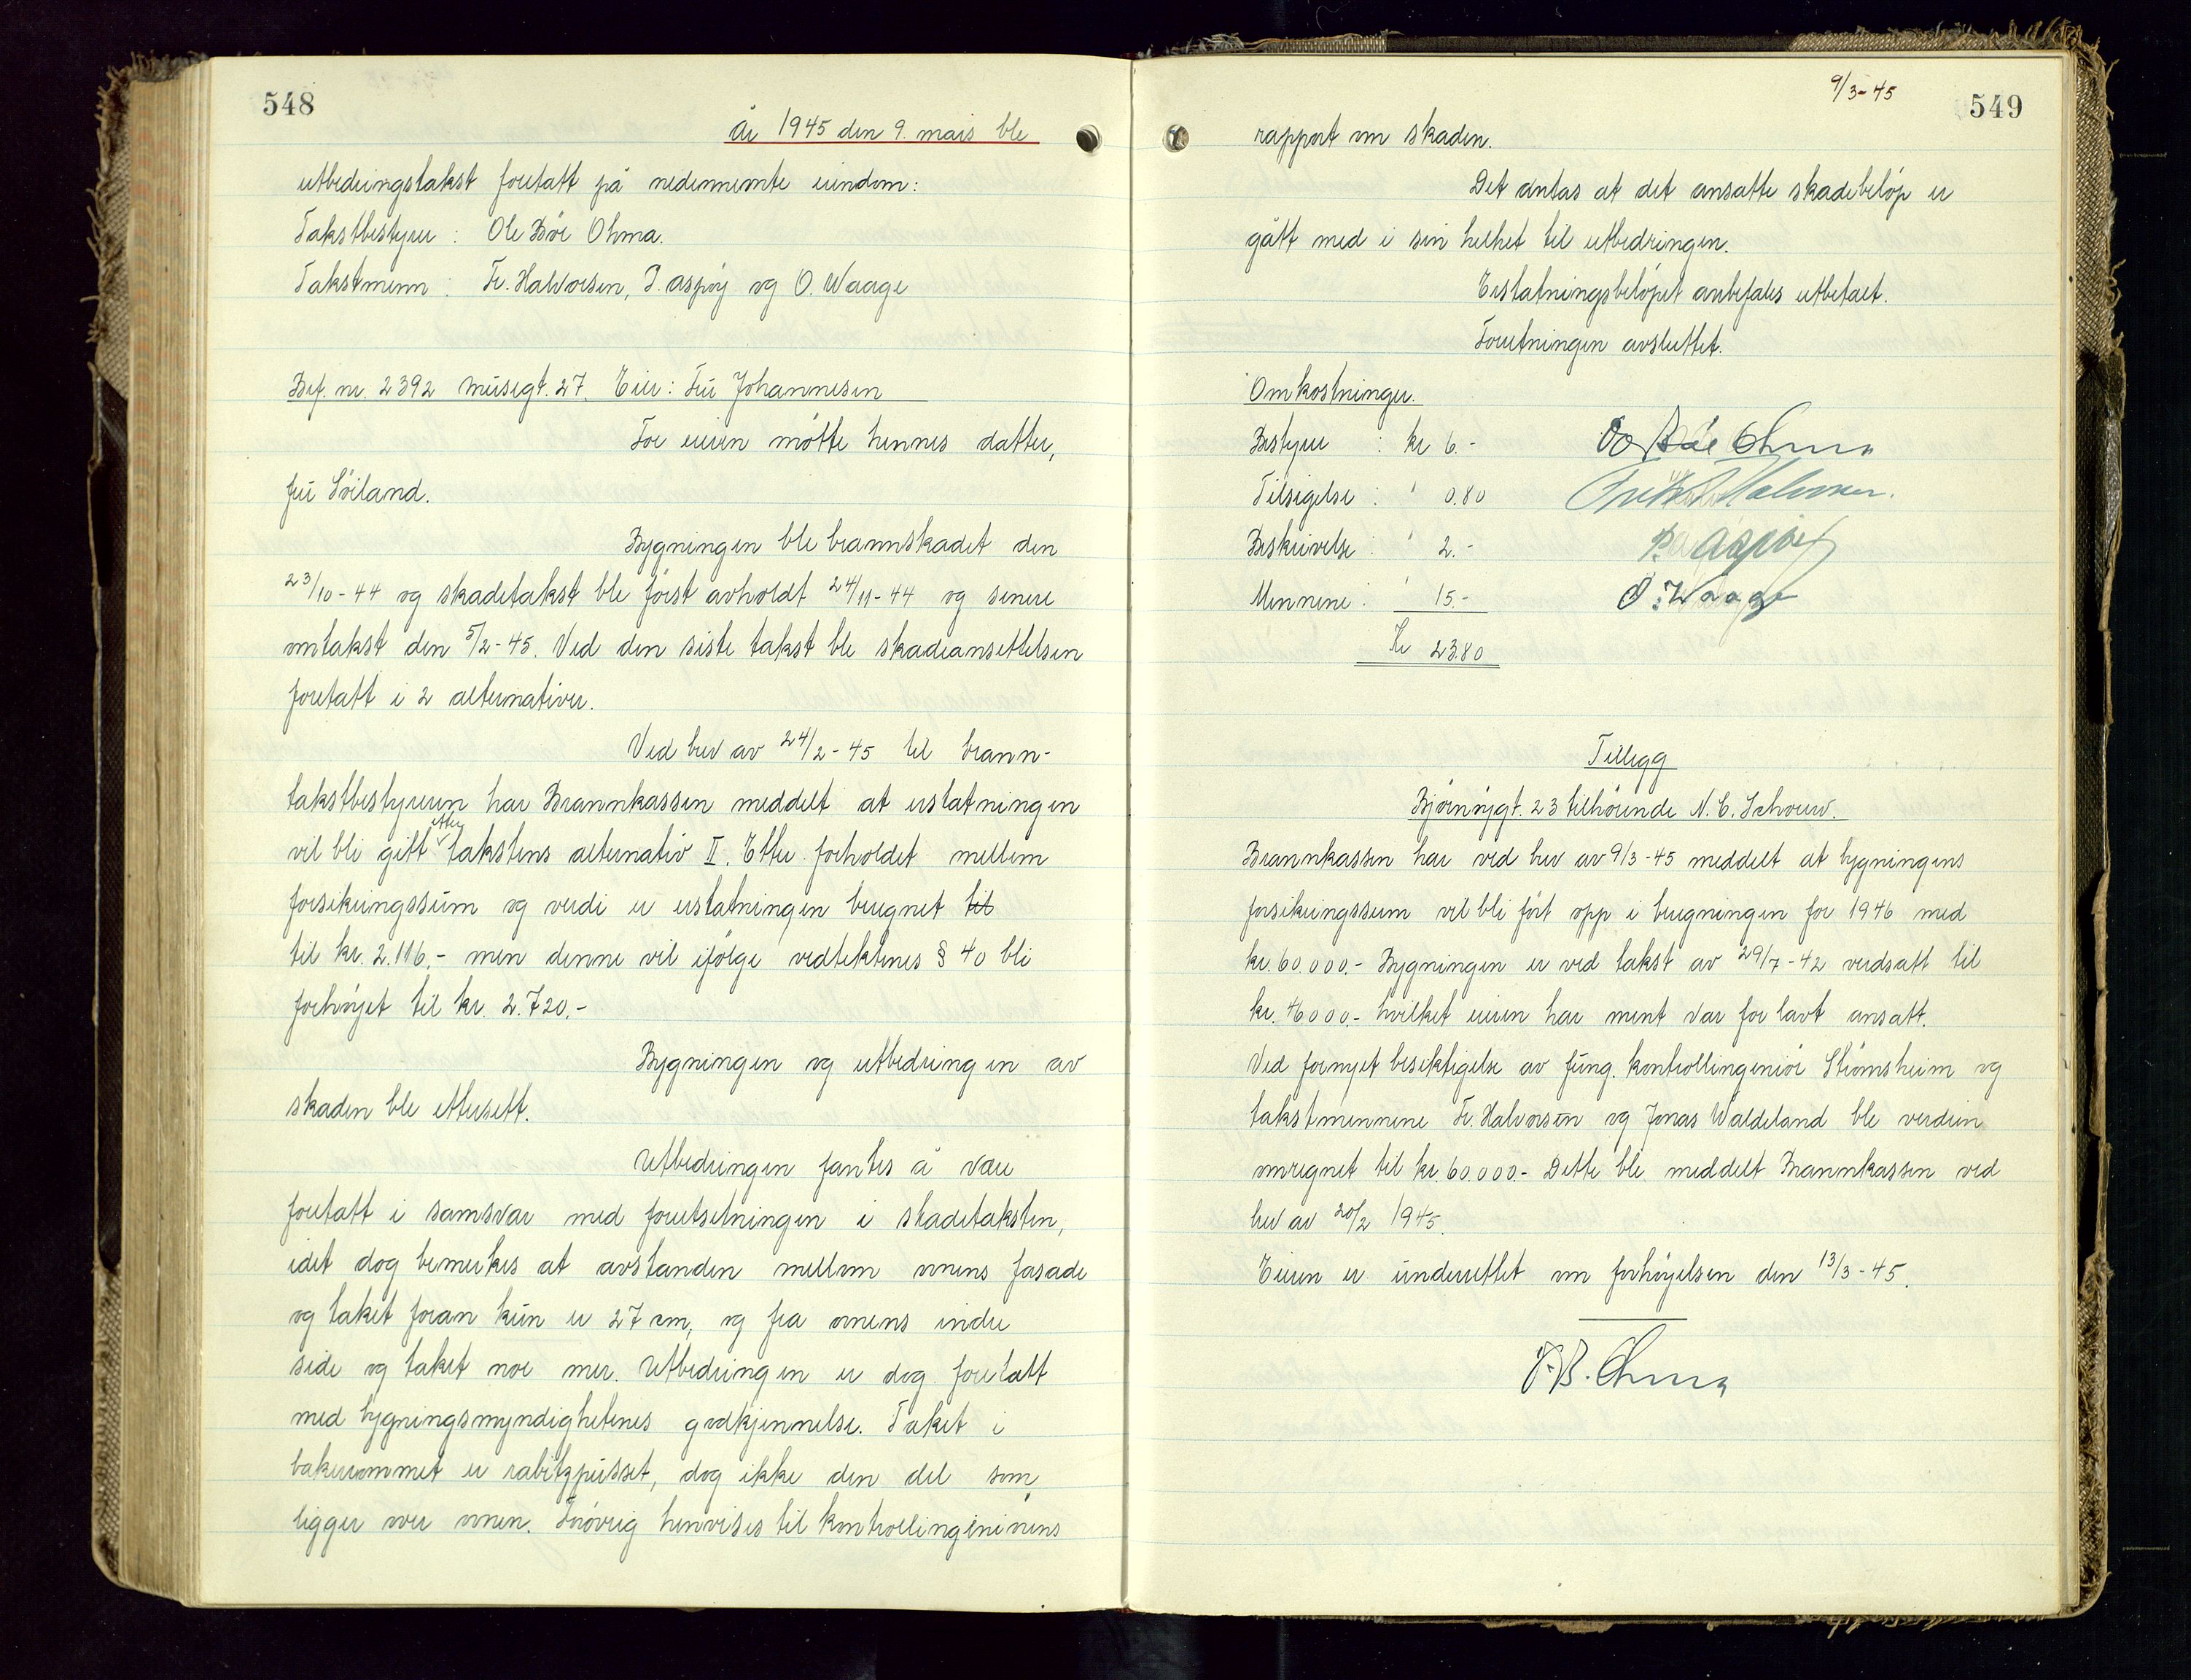 548
År 1945 den 9. mars ble
utbedringstakst foretatt på nedennevnte eiendom:
Takstbestyrer : Ole Böe Ohma.
Takstmenn : Fr. Halvorsen, P. Aspøy og O. Waage
Brf. nr. 2392 Musegt. 27. Eier: Fru Johannesen
For eieren møtte hennes datter,
fru Söiland.
Bygningen ble brannskadet den
23/10-44 og skadetakst ble först avholdt 24/11-44 og senere
omtakst den 5/2-45. Ved den siste takst ble skadeansettelsen
foretatt i 2 alternativer.
Ved brev av 24/2-45 til brann-
takstbestyreren har Brannkassen meddelt at erstatningen
vil bli gitt etter takstens alternativ II. Etter forholdet mellem
forsikringssum og verdi er erstatningen beregnet til
til kr. 2.116.- men denne vil ifölge vedtektenes § 40 bli
forhöyet til kr. 2.720.-
Bygningen og utbedringen av
skaden ble ettersett.
Utbedringen fantes å være
foretatt i samsvar med forutsetningen i skadetaksten,
idet dog bemerkes at avstanden mellom ovnens fasade
og taket foran kun er 27 cm, og fra ovnens indre
side og taket noe mer. Utbedringen er dog foretatt
med bygningsmyndighetenes godkjennelse. Taket i
bakerommet er rabitzpusset, dog ikke den del som
ligger over ovnen. Forövrig henvises til kontrollingeniörens
9/3-45
549
rapport om skaden.
Det antas at det ansatte skadebelöp er
gått med i sin helhet til utbedringen.
Erstatningsbelöpet anbefales utbetalt.
Forretningen avsluttet.
Omkostninger.
Bestyrer : kr 6.- O Böe Ohma
Tilsigelse : " 0.80 Fritz Halvorsen.
Beskrivelse : " 2.- P. Aspöy
Mennene : " 15.- O. Waage
Kr 23.80
Tillegg
Björnöygt. 23 tilhörende N. C. Schouw.
Brannkassen har ved brev av 9/3-45 meddelt at bygningens
forsikringssum vil bli fört opp i beregningen for 1946 med
kr. 60.000.- Bygningen er ved takst av 29/7-42 verdsatt til
kr. 46000.- hvilket eieren har ment var for lavt ansatt.
Ved fornyet besiktigelse av fung. kontrollingeniör Strömsheim og
takstmennene Fr. Halvorsen og Jonas Waldeland ble verdien
omregnet til kr. 60.000.- Dette ble meddelt Brannkassen ved
brev av 20/2 1945.
Eieren er underrettet om forhöyelsen den 13/3-45.
O. B. Ohma